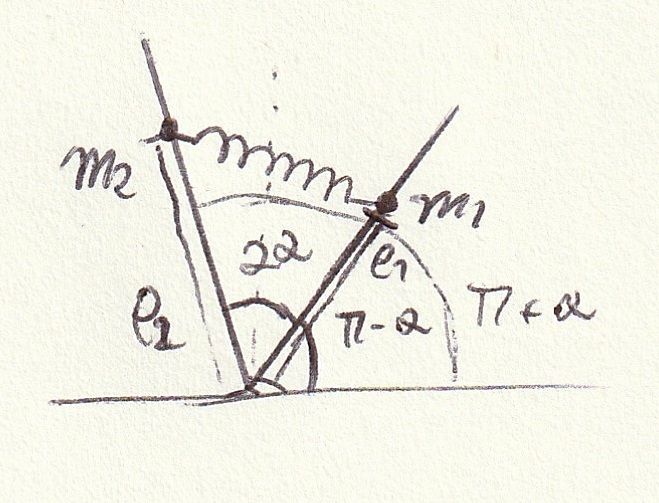 m2
m1
2α
ρ1
ρ2
π-α
π+α